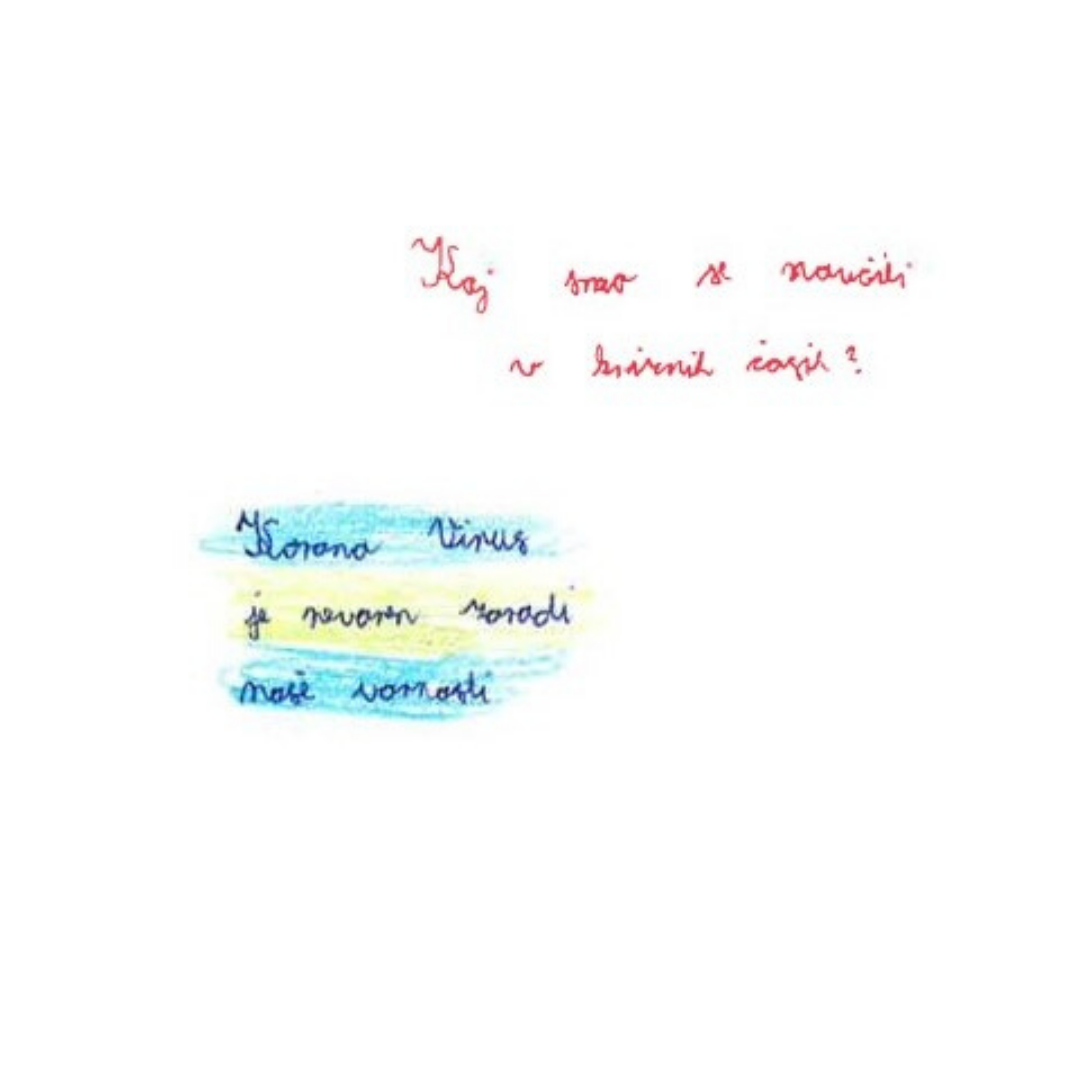 Kaj smo se naučili
v kriznih časih?
Korona Virus
je nevaren zaradi
naše varnosti